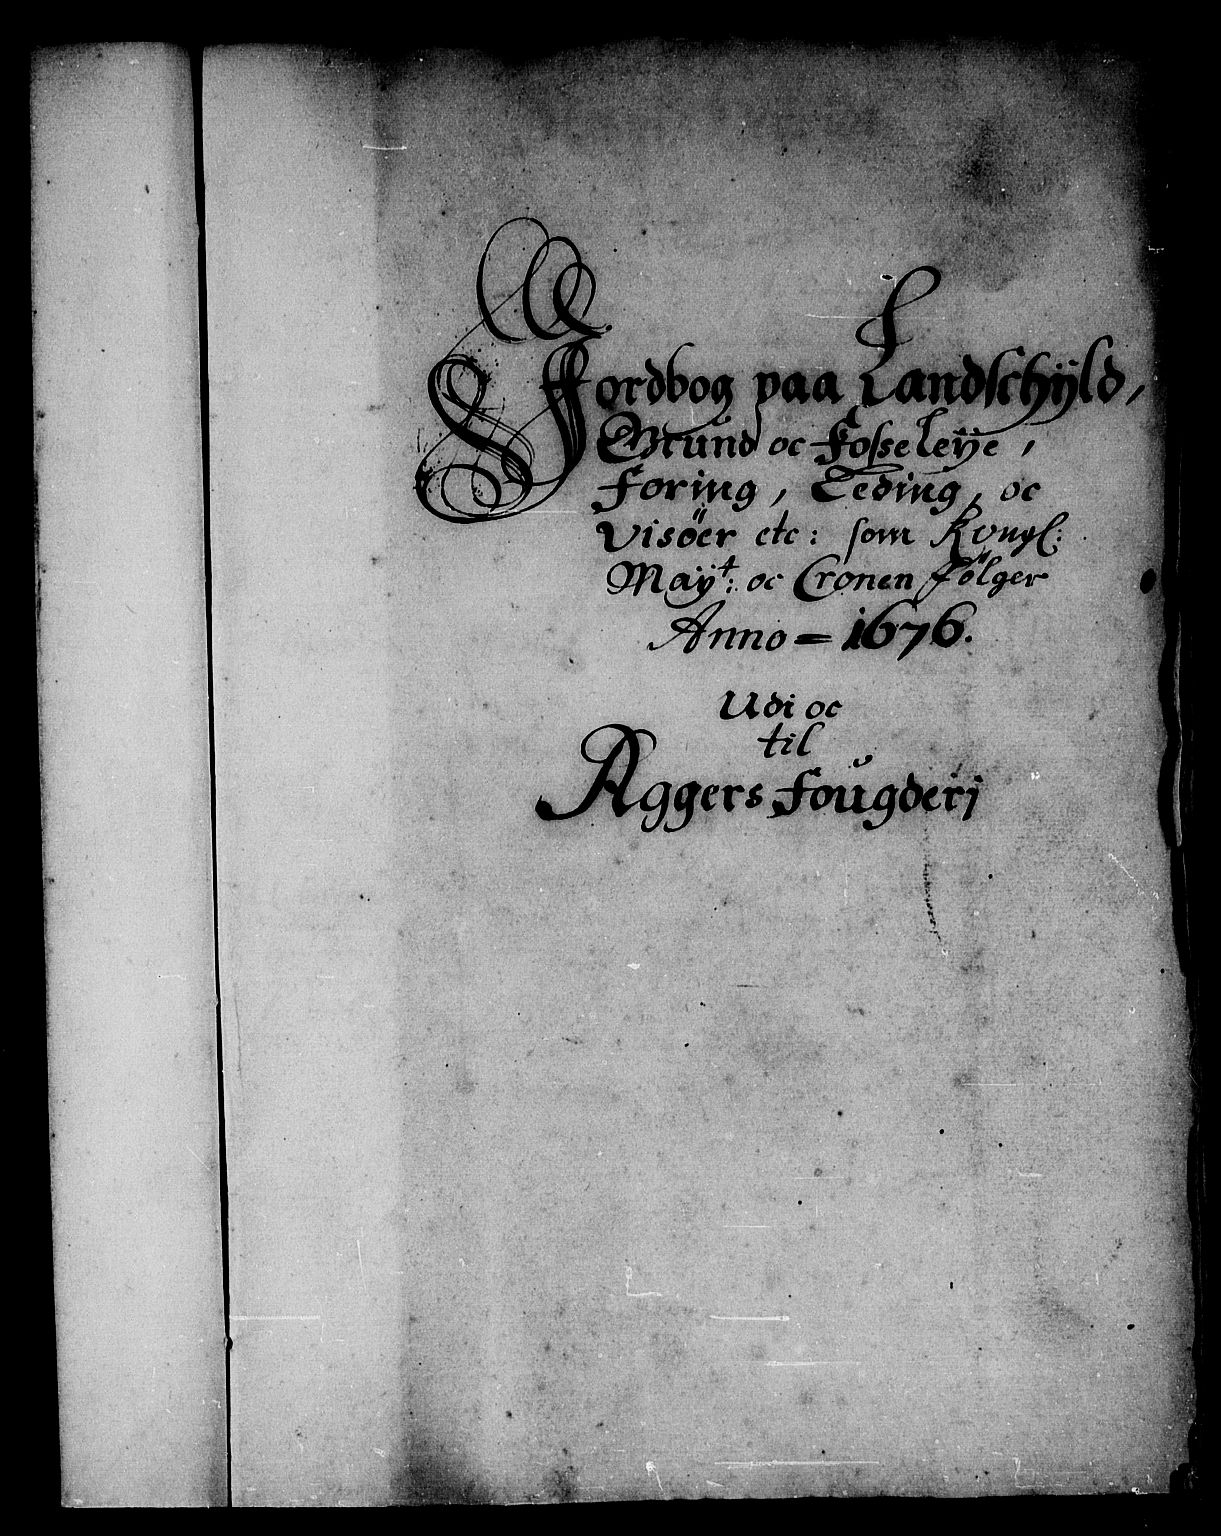 Jordbog paa Landschÿld,
Grund oc Fosse Leÿe,
Foring, Leding, oc
Visöer etc: som Kongl:
Maÿt: oc Cronen Følger
Anno = 1676.
Udi oc
til
Aggers Fougderj